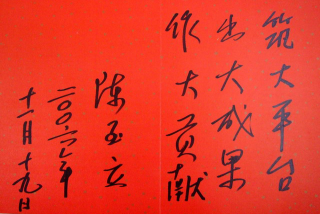 筑大平台
出大成果
作大贡献
陈玉立
二〇〇六年
十一月十九日